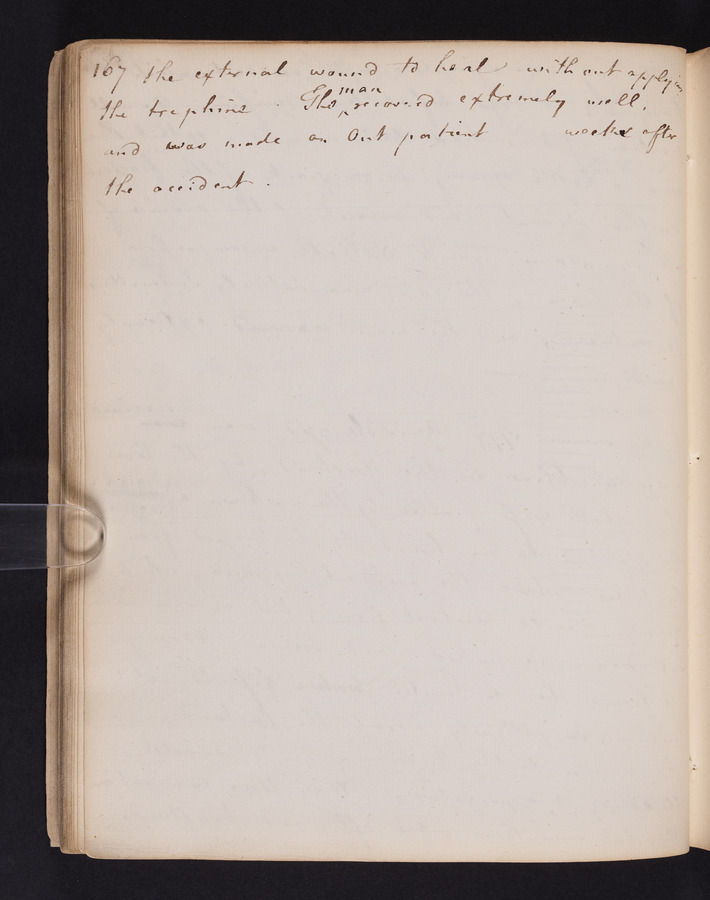 167 the external wound to heal without applying
the trephine. The man recovered extremely well,
and was made an Out patient weeks after
the accident.